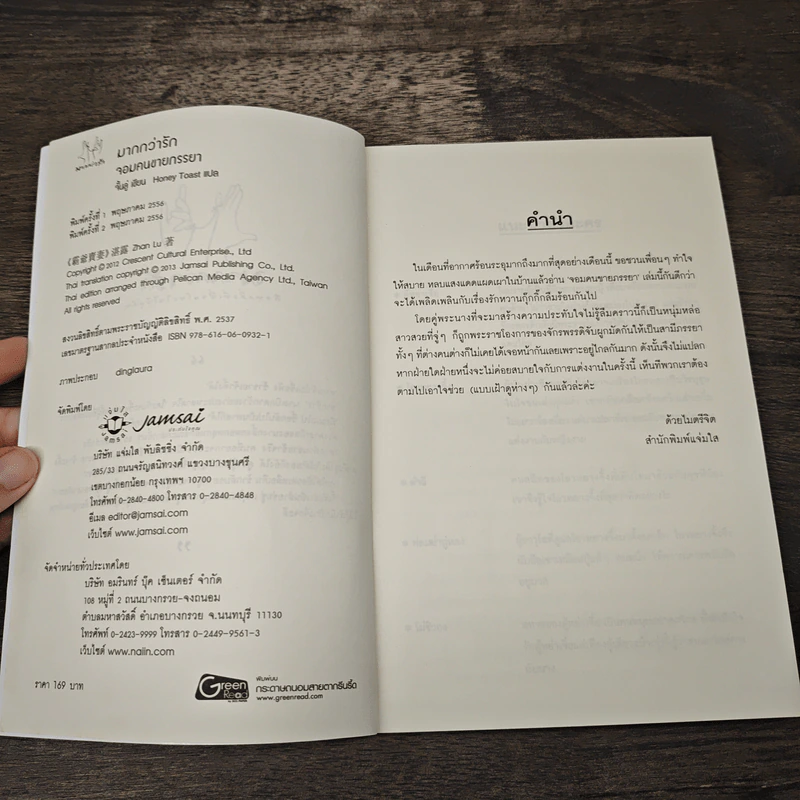 มากกว่ารัก
มากกว่ารัก
จอมคนขายภรรยา
จั้นลู่ เขียน Honey Toast แปล
พิมพ์ครั้งที่ 1 พฤษภาคม 2556
พิมพ์ครั้งที่ 2 พฤษภาคม 2556
《霸爺賣妻》湛露 Zhan Lu 著
Copyright © 2012 Crescent Cultural Enterprise., Ltd
Thai translation copyright © 2013 Jamsai Publishing Co., Ltd.
Thai edition arranged through Pelican Media Agency Ltd., Taiwan
All rights reserved
สงวนลิขสิทธิ์ตามพระราชบัญญัติลิขสิทธิ์ พ.ศ. 2537
เลขมาตรฐานสากลประจำหนังสือ ISBN 978-616-06-0932-1
ภาพประกอบ dinglaura
จัดพิมพ์โดย
Jamsai
บริษัท แจ่มใส พับลิชชิ่ง จำกัด
285/33 ถนนจรัญสนิทวงศ์ แขวงบางขุนศรี
เขตบางกอกน้อย กรุงเทพฯ 10700
โทรศัพท์ 0-2840-4800 โทรสาร 0-2840-4848
อีเมล editor@jamsai.com
เว็บไซต์ www.jamsai.com
จัดจำหน่ายทั่วประเทศโดย
บริษัท อมรินทร์ บุ๊ค เซ็นเตอร์ จำกัด
108 หมู่ที่ 2 ถนนบางกรวย-จงถนอม
ตำบลมหาสวัสดิ์ อำเภอบางกรวย จ.นนทบุรี 11130
โทรศัพท์ 0-2423-9999 โทรสาร 0-2449-9561-3
เว็บไซต์ www.naiin.com
ราคา 169 บาท
Green Read
พิมพ์บน
กระดาษถนอมสายตากรีนรี้ด
www.greenread.com
คำนำ
ในเดือนที่อากาศร้อนระอุมากถึงมากที่สุดอย่างเดือนนี้ ขอชวนเพื่อนๆ ทำใจ
ให้สบาย หลบแสงแดดแผดเผาในบ้านแล้วอ่าน 'จอมคนขายภรรยา' เล่มนี้กันดีกว่า
จะได้เพลิดเพลินกับเรื่องรักหวานกุ๊กกิ๊กลืมร้อนกันไป
โดยคู่พระนางที่จะมาสร้างความประทับใจไม่รู้ลืมคราวนี้ก็เป็นหนุ่มหล่อ
สาวสวยที่จู่ๆ ก็ถูกพระราชโองการของจักรพรรดิจับผูกมัดกันให้เป็นสามีภรรยา
ทั้งๆ ที่ต่างคนต่างก็ไม่เคยได้เจอหน้ากันเลยเพราะอยู่ไกลกันมาก ดังนั้นจึงไม่แปลก
หากฝ่ายใดฝ่ายหนึ่งจะไม่ค่อยสบายใจกับการแต่งงานในครั้งนี้ เห็นทีพวกเราต้อง
ตามไปเอาใจช่วย (แบบเฝ้าดูห่างๆ) กันแล้วล่ะค่ะ
ด้วยไมตรีจิต
สำนักพิมพ์แจ่มใส